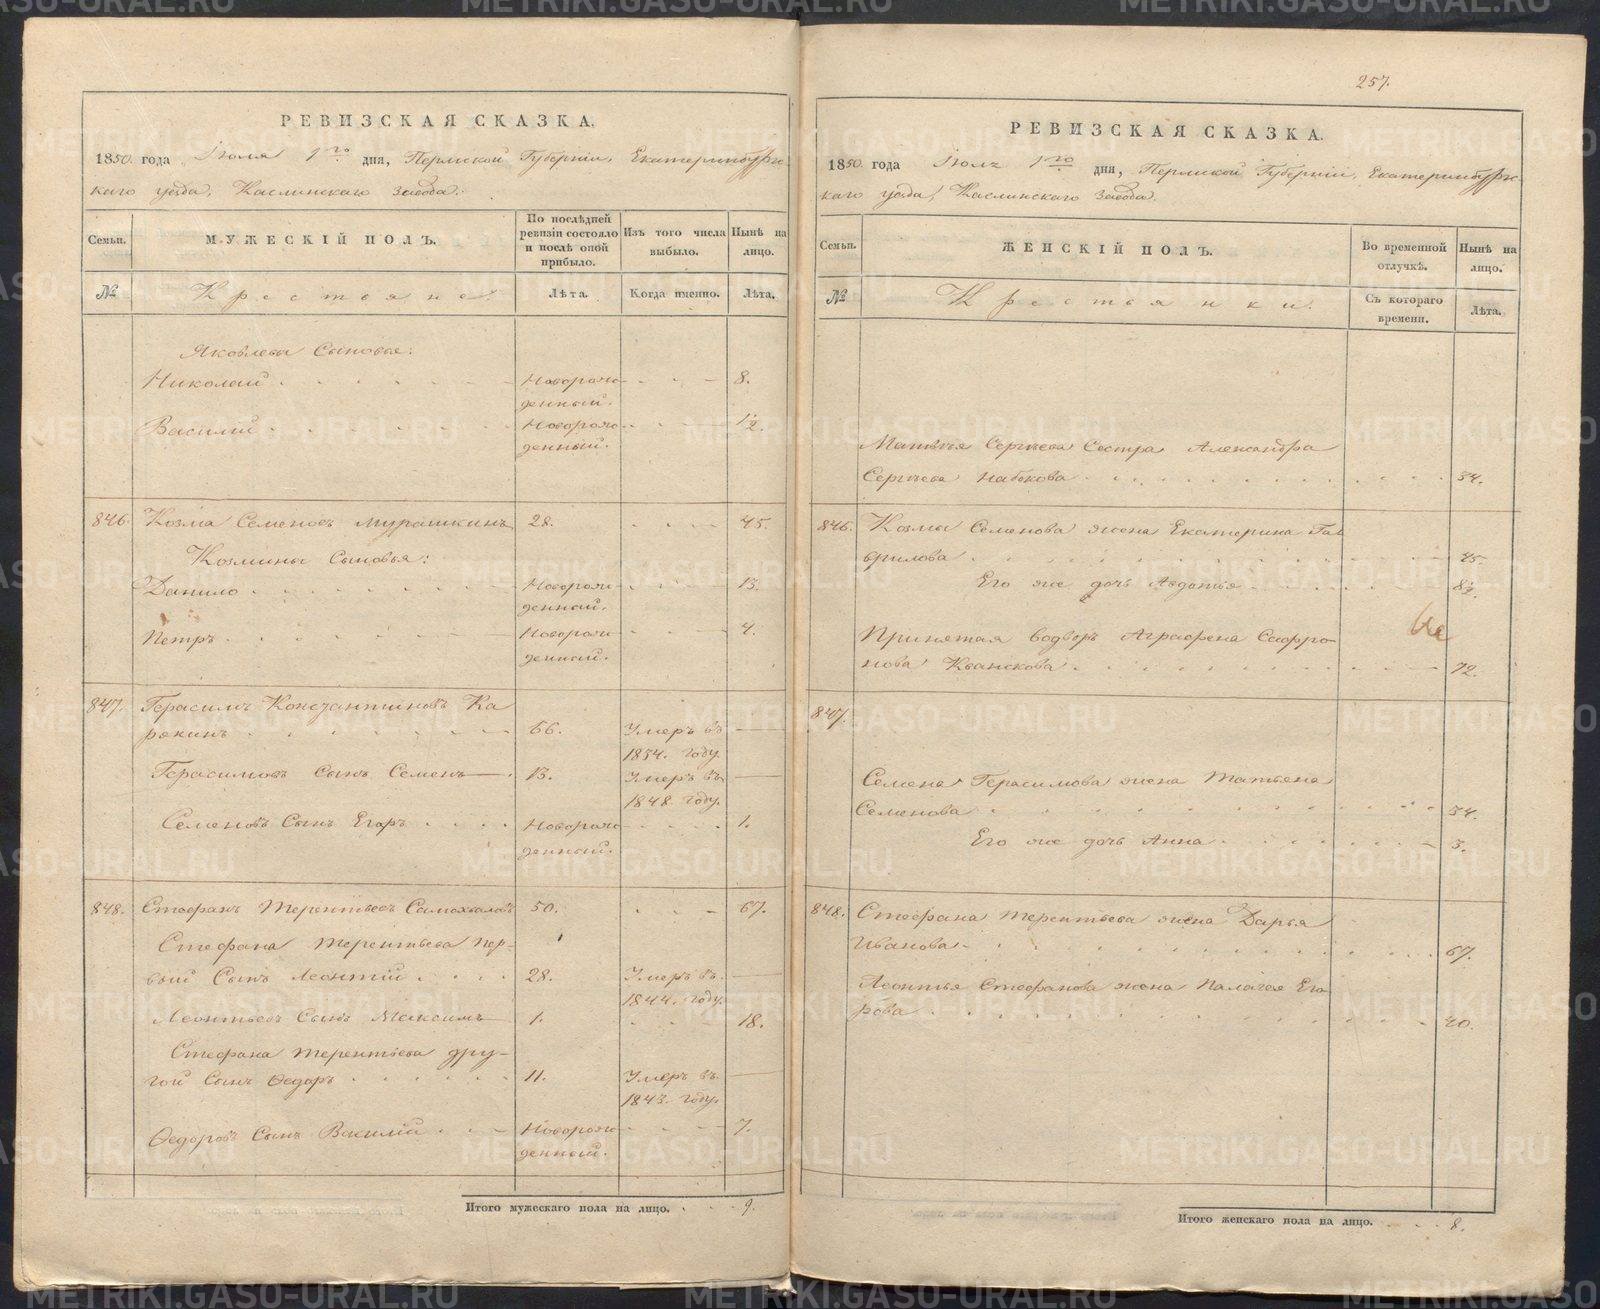 РЕВИЗСКАЯ СКАЗКА.
1850. года Июля 1го дня, Пермской Губернии, Екатеринбургс-
каго уезда, Каслинскаго завода.
Семьи.
МУЖЕСКІЙ ПОЛЪ.
По послѣдней
ревизіи состояло
и послѣ оной
прибыло.
Изъ того числа
выбыло.
Нынѣ на
лицо.
№
Крестьяне.
Лѣта.
Когда именно.
Лѣта.
Яковлевы Сыновья:
Николай новорож- 8.
денный.
Василий новорож- 1/2.
денный.
846. Козма Семеновъ Мурашкинъ 28. 45.
Козмины Сыновья:
Данило новорож- 13.
денный.
Петръ новорож- 4.
денный.
847. Герасимъ Константиновъ Ка
рякинъ 66. Умеръ въ
1834. году.
Герасимовъ сынъ Семенъ 13. Умеръ въ
1848. году.
Семеновъ Сынъ Егоръ новорож- 1.
денный.
848. Стефанъ Терентьевъ Самохваловъ 50. 67.
Стефана Терентьева пер-
вый Сынъ Леонтий 28. Умеръ въ
1844. году.
Леонтьевъ Сынъ Максимъ 1. 18.
Стефана Терентьева дру-
гой Сынъ Ѳедоръ 11. Умеръ въ
1843. году.
Ѳедоровъ Сынъ Василий новорож- 7.
денный.
Итого мужескаго пола на лицо. 9.
257.
РЕВИЗСКАЯ СКАЗКА.
1850 года Июля 1го дня, Пермской Губернии, Екатеринбургс-
каго уезда, Каслинскаго завода.
Семьи.
ЖЕНСКІЙ ПОЛЪ.
Во временной
отлучкѣ.
Нынѣ на
лицо.
№
Крестьянки.
Съ котораго
времени.
Лѣта.
Матвѣя Сергѣева Сестра Александра
Сергѣева Набокова 34.
846. Козмы Семенова жена Екатерина Гав
рилова 45.
Его же дочь Авдотья 8 1/2.
Принятая водворъ Аграфена Сафро-
нова 72.
847.
Семена Герасимова жена Татьяна
Семенова 34.
Его же дочь Анна 3.
848. Стефана Терентьева жена Дарья
Иванова 67.
Леонтья Стефанова жена Палагея Его
рова 40.
Итого женскаго пола на лицо. 8.
METRIKI.GASO-URAL.RU